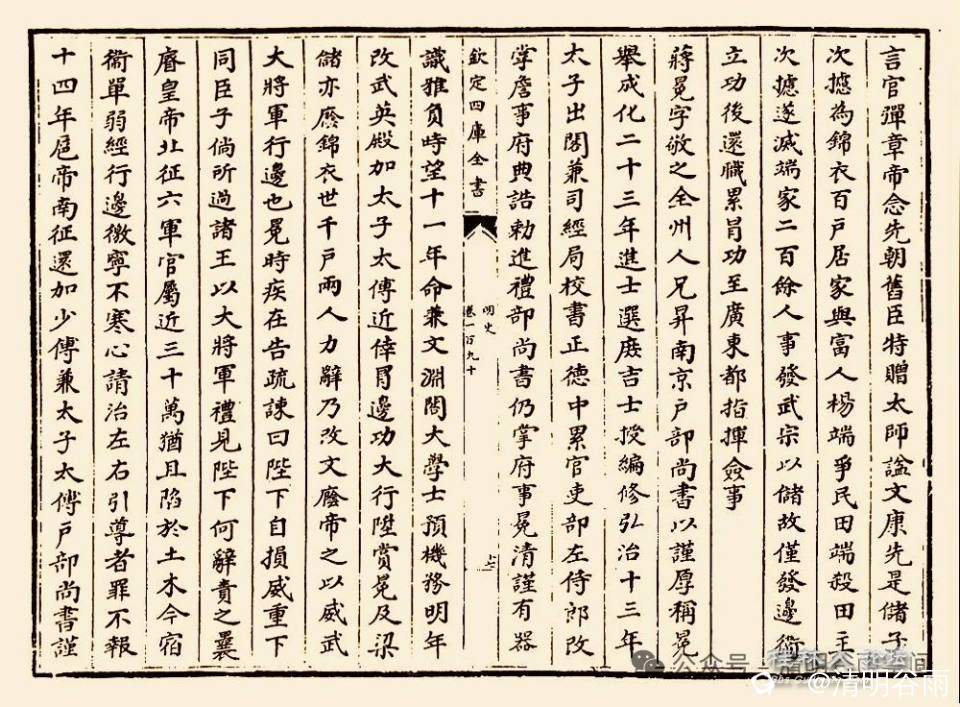 言官彈章帝念先朝舊臣特贈太師諡文康先是儲子
次攄為錦衣百戶居家與富人楊端爭民田端殺田主
次攄遂滅端家二百餘人事發武宗以儲故僅發邊衛
立功後還職累冒功至廣東都指揮僉事
蔣冕字敬之全州人兄昇南京戶部尚書以謹厚稱冕
舉成化二十三年進士選庶吉士授編修弘治十三年
太子出閣兼司經局校書正德中累官吏部左侍郎改
掌詹事府典誥勅進禮部尚書仍掌府事冕清謹有器
欽定四庫全書
明史
卷一百九十
十七
識雅負時望十一年命兼文淵閣大學士預機務明年
改武英殿加太子太傅近倖冒邊功大行陞賞冕及梁
儲亦廕錦衣世千戶兩人力辭乃改文廕帝之以威武
大將軍行邊也冕時疾在告疏諫曰陛下自損威重下
同臣子倘所過諸王以大將軍禮見陛下何辭責之曩
睿皇帝北征六軍官屬近三十萬猶且陷於土木今宿
衛單弱經行邊徼寧不寒心請治左右引導者罪不報
十四年扈帝南征還加少傅兼太子太傅戶部尚書謹
公众号
@清明谷雨